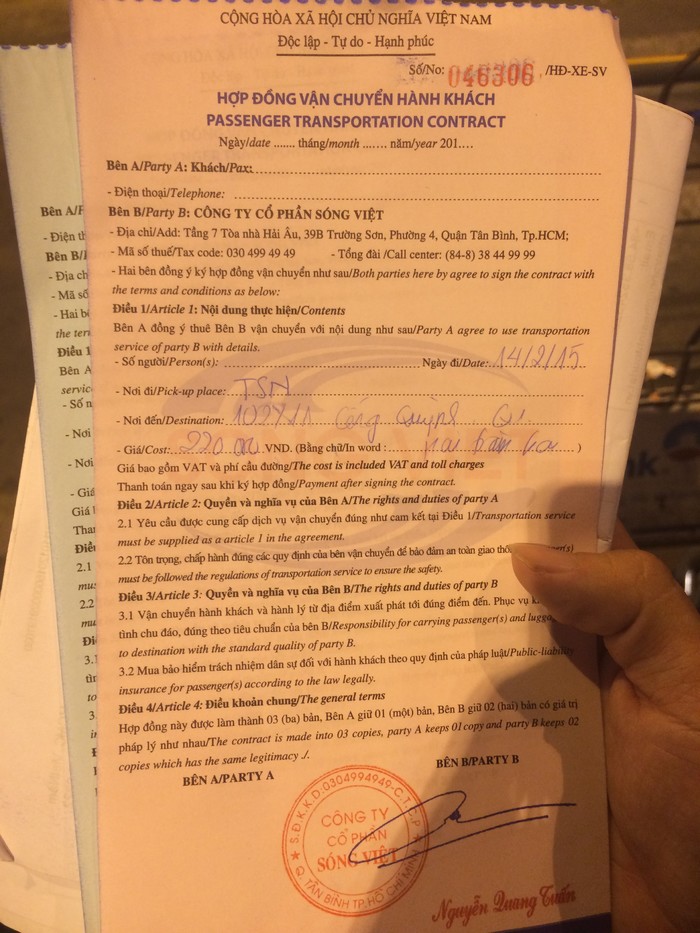 CỘNG HÒA XÃ HỘI CHỦ NGHĨA VIỆT NAM
Độc lập - Tự do - Hạnh phúc
Số/No: 046306 /HĐ-XE-SV
HỢP ĐỒNG VẬN CHUYỂN HÀNH KHÁCH
PASSENGER TRANSPORTATION CONTRACT
Ngày/date ....... tháng/month ....... năm/year 201....
Bên A/Party A: Khách/Pax:
- Điện thoại/Telephone:
Bên B/Party B: CÔNG TY CỔ PHẦN SÓNG VIỆT
- Địa chỉ/Add: Tầng 7 Tòa nhà Hải Âu, 39B Trường Sơn, Phường 4, Quận Tân Bình, Tp.HCM;
- Mã số thuế/Tax code: 030 499 49 49 - Tổng đài /Call center: (84-8) 38 44 99 99
- Hai bên đồng ý ký hợp đồng vận chuyển như sau/Both parties here by agree to sign the contract with
the terms and conditions as below:
Điều 1/Article 1: Nội dung thực hiện/Contents
Bên A đồng ý thuê Bên B vận chuyển với nội dung như sau/Party A agree to use transportation
service of party B with details.
- Số người/Person(s): Ngày đi/Date: 14/2/15
- Nơi đi/Pick-up place: TSN
- Nơi đến/Destination: Cống Quỳnh Q1
- Giá/Cost: 220.000 VND. (Bằng chữ/In word : hai trăm hai )
Giá bao gồm VAT và phí cầu đường/The cost is included VAT and toll charges
Thanh toán ngay sau khi ký hợp đồng/Payment after signing the contract.
Điều 2/Article 2: Quyền và nghĩa vụ của Bên A/The rights and duties of party A
2.1 Yêu cầu được cung cấp dịch vụ vận chuyển đúng như cam kết tại Điều 1/Transportation service
must be supplied as a article 1 in the agreement.
2.2 Tôn trọng, chấp hành đúng các quy định của bên vận chuyển để bảo đảm an toàn giao
must be followed the regulations of transportation service to ensure the safety.
Điều 3/Article 3: Quyền và nghĩa vụ của Bên B/The rights and duties of party B
3.1 Vận chuyển hành khách và hành lý từ địa điểm xuất phát tới đúng điểm đến. Phục vụ
tình chu đáo, đúng theo tiêu chuẩn của bên B/Responsibility for carrying passenger(s) and
to destination with the standard quality of party B.
3.2 Mua bảo hiểm trách nhiệm dân sự đối với hành khách theo quy định của pháp luật/Public-liability
insurance for passenger(s) according to the law legally.
Điều 4/Article 4: Điều khoản chung/The general terms
Hợp đồng này được làm thành 03 (ba) bản, Bên A giữ 01 (một) bản, Bên B giữ 02 (hai) bản có giá trị
pháp lý như nhau/The contract is made into 03 copies, party A keeps 01 copy and party B keeps 02
copies which has the same legitimacy ./.
BÊN A/PARTY A BÊN B/PARTY B
S.Đ.K.K.D:0304994949-C.T.C.P
CÔNG TY
CỔ PHẦN
SÓNG VIỆT
Q. TÂN BÌNH TP. HỒ CHÍ MINH
Nguyễn Quang Tuấn